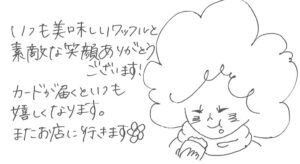 いつも美味しいワッフルと
素敵な笑顔ありがとう
ございます!
カードが届くといつも
嬉しくなります。
またお店に行きます